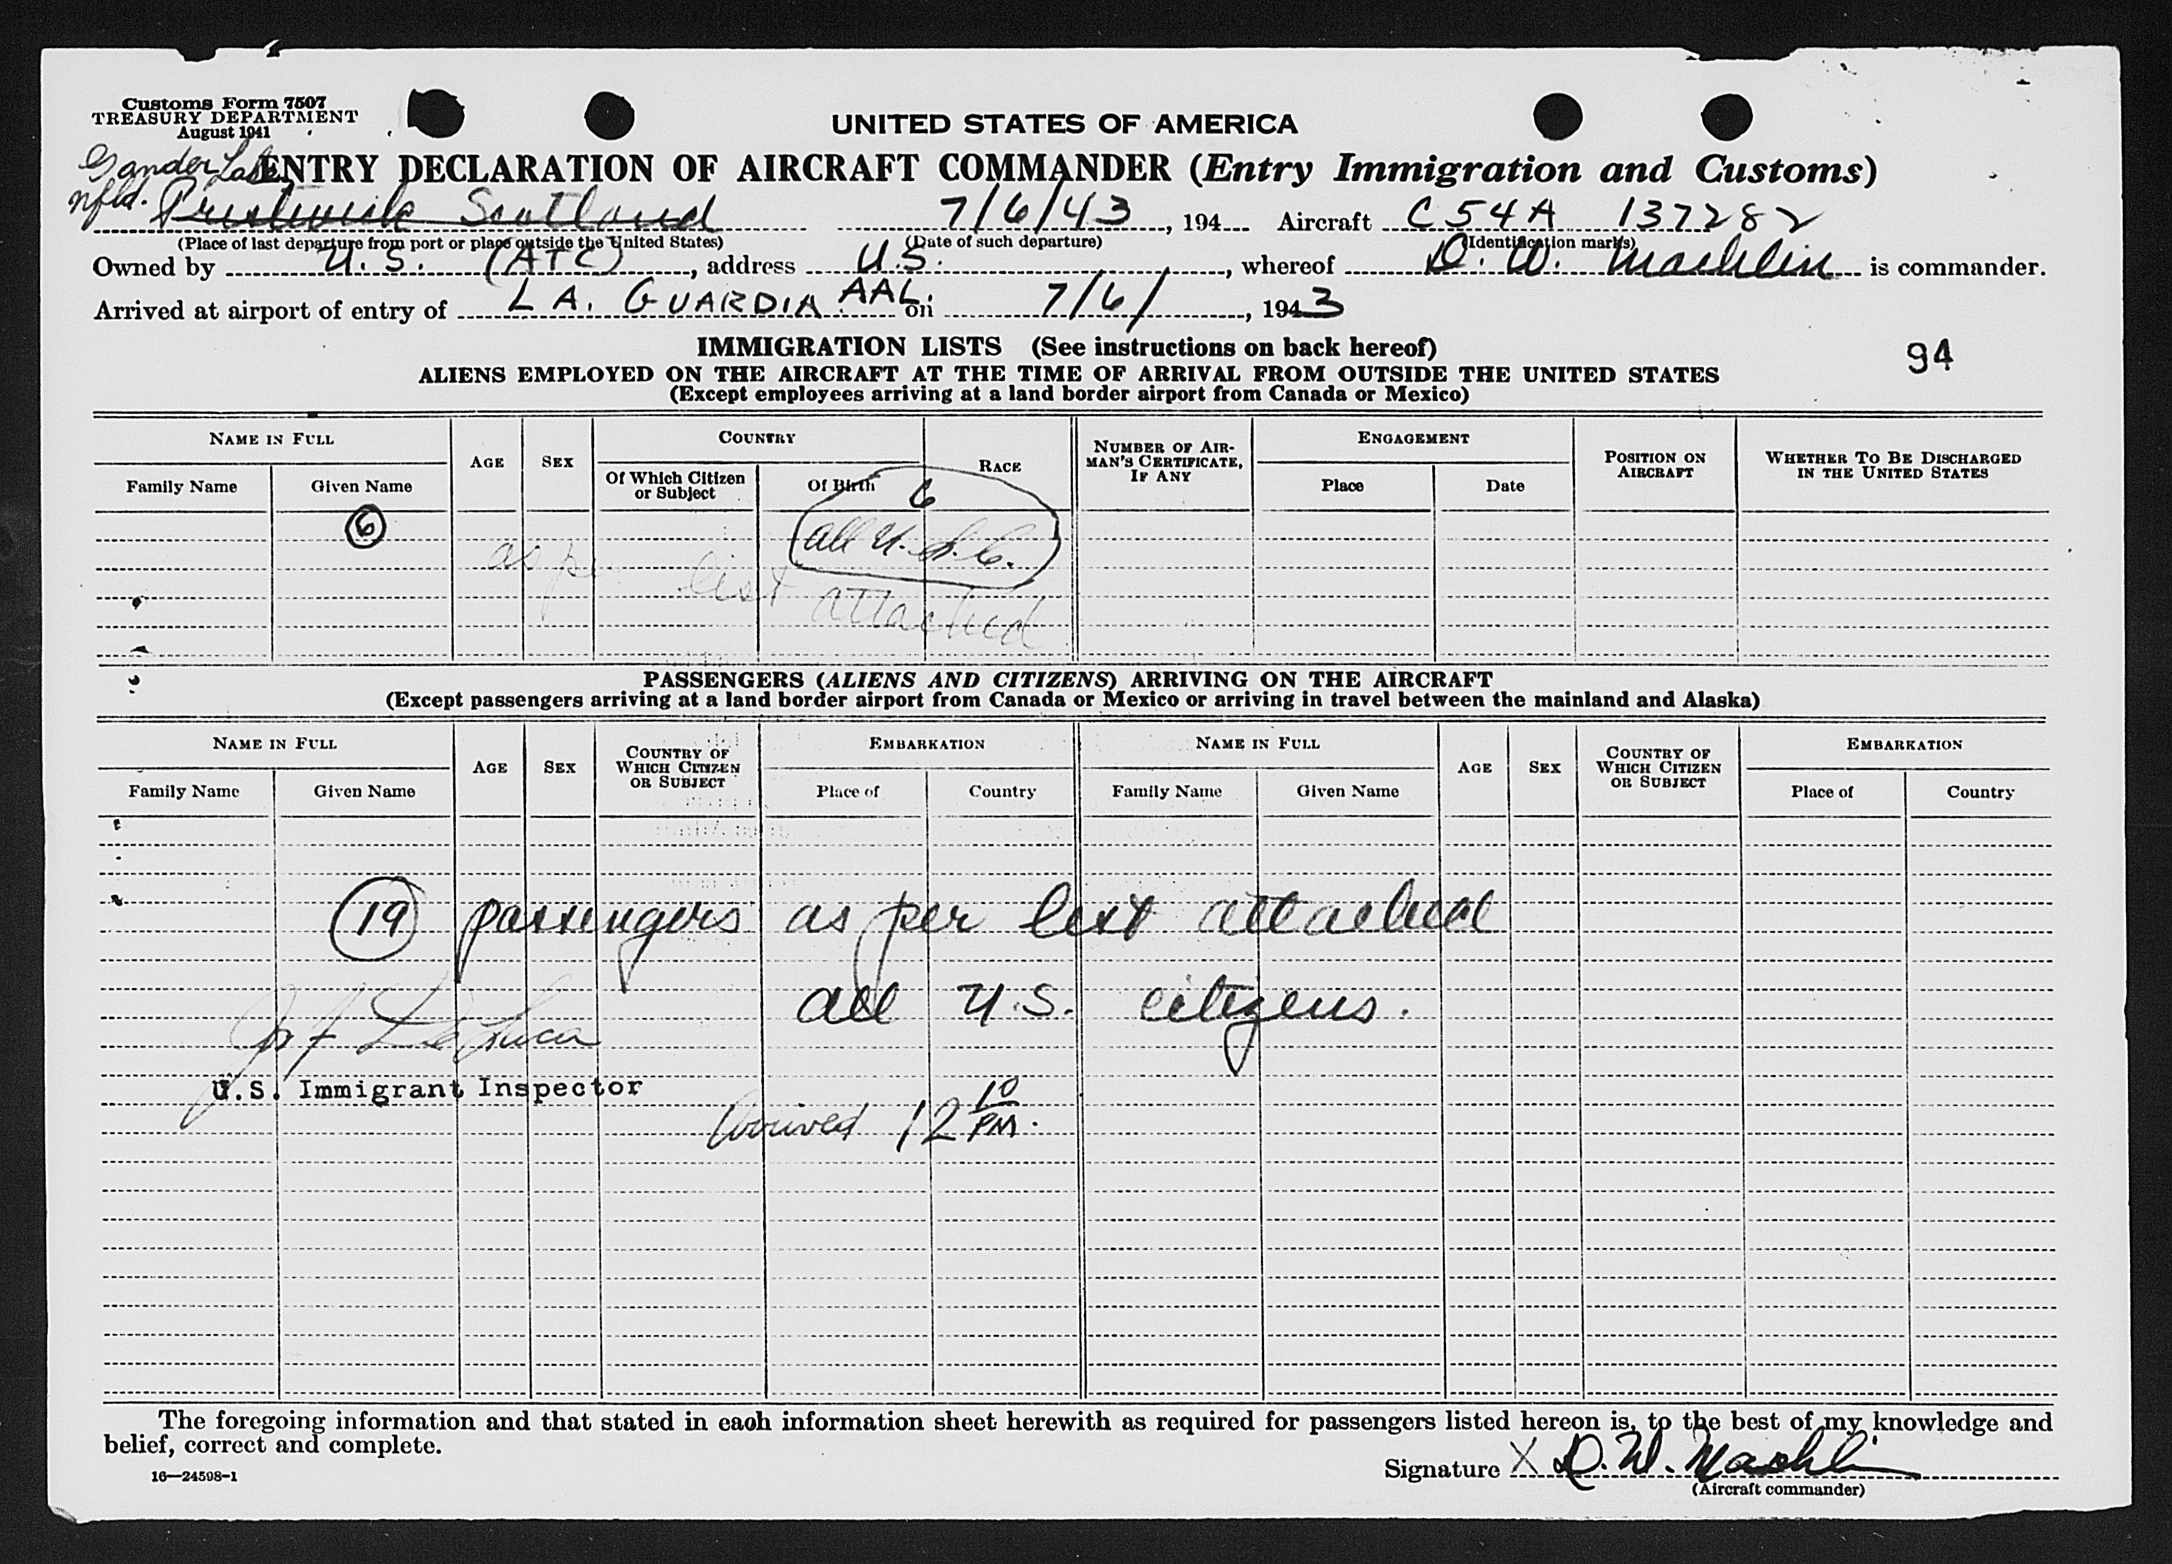 Customs Form 7507
TREASURY DEPARTMENT
August 1941
UNITED STATES OF AMERICA
ENTRY DECLARATION OF AIRCRAFT COMMANDER (Entry Immigration and Customs)
Gander Lake
Nfld. Prestwick Scotland 7/6/43, 194 Aircraft C54A 137282
(Place of last departure from port or place outside the United States) (Date of such departure) (Identification marks)
Owned by U.S. (ATC), address U.S., whereof D. W. Machlin is commander.
Arrived at airport of entry of LA. GUARDIA AAL. on 7/6/, 1943
IMMIGRATION LISTS (See instructions on back hereof)
94
ALIENS EMPLOYED ON THE AIRCRAFT AT THE TIME OF ARRIVAL FROM OUTSIDE THE UNITED STATES
(Except employees arriving at a land border airport from Canada or Mexico)
NAME IN FULL AGE SEX COUNTRY RACE NUMBER OF AIRMAN'S CERTIFICATE, IF ANY ENGAGEMENT POSITION ON AIRCRAFT WHETHER TO BE DISCHARGED IN THE UNITED STATES
Family Name Given Name Of Which Citizen or Subject Of Birth Place Date
6
6
all U.S.C.
as per list attached
PASSENGERS (ALIENS AND CITIZENS) ARRIVING ON THE AIRCRAFT
(Except passengers arriving at a land border airport from Canada or Mexico or arriving in travel between the mainland and Alaska)
NAME IN FULL AGE SEX COUNTRY OF WHICH CITIZEN OR SUBJECT EMBARKATION NAME IN FULL AGE SEX COUNTRY OF WHICH CITIZEN OR SUBJECT EMBARKATION
Family Name Given Name Place of Country Family Name Given Name Place of Country
19 passengers as per list attached
all U.S. citizens.
U.S. Immigrant Inspector
Arrived 12 10 PM.
The foregoing information and that stated in each information sheet herewith as required for passengers listed hereon is, to the best of my knowledge and
belief, correct and complete.
16—24598-1
Signature X D. W. Machlin
(Aircraft commander)